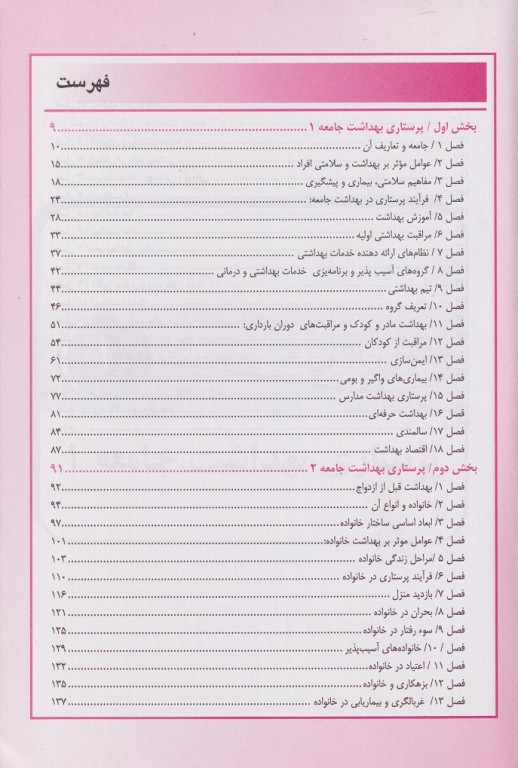 فهرست
بخش اول / پرستاری بهداشت جامعه ۱ ........ ۹
فصل ۱/ جامعه و تعاریف آن ........ ۱۰
فصل ۲/ عوامل مؤثر بر بهداشت و سلامتی افراد ........ ۱۵
فصل ۳/ مفاهیم سلامتی، بیماری و پیشگیری ........ ۱۸
فصل ۴/ فرآیند پرستاری در بهداشت جامعه: ........ ۲۴
فصل ۵/ آموزش بهداشت ........ ۲۸
فصل ۶/ مراقبت بهداشتی اولیه ........ ۳۳
فصل ۷ / نظام‌های ارائه دهنده خدمات بهداشتی ........ ۳۷
فصل ۸ / گروه‌های آسیب پذیر و برنامه‌ریزی خدمات بهداشتی و درمانی ........ ۴۲
فصل ۹/ تیم بهداشتی ........ ۴۴
فصل ۱۰/ تعریف گروه ........ ۴۶
فصل ۱۱/ بهداشت مادر و کودک و مراقبت‌های دوران بارداری: ........ ۵۱
فصل ۱۲/ مراقبت از کودکان ........ ۵۴
فصل ۱۳/ ایمن‌سازی ........ ۶۱
فصل ۱۴/ بیماری‌های واگیر و بومی ........ ۷۲
فصل ۱۵/ پرستاری بهداشت مدارس ........ ۷۷
فصل ۱۶/ بهداشت حرفه‌ای ........ ۸۱
فصل ۱۷/ سالمندی ........ ۸۴
فصل ۱۸/ اقتصاد بهداشت ........ ۸۷
بخش دوم/ پرستاری بهداشت جامعه ۲ ........ ۹۱
فصل ۱/ بهداشت قبل از ازدواج ........ ۹۲
فصل ۲/ خانواده و انواع آن ........ ۹۴
فصل ۳/ ابعاد اساسی ساختار خانواده ........ ۹۷
فصل ۴/ عوامل موثر بر بهداشت خانواده: ........ ۱۰۱
فصل ۵ /مراحل زندگی خانواده ........ ۱۰۳
فصل ۶/ فرآیند پرستاری در خانواده ........ ۱۱۰
فصل ۷/ بازدید منزل ........ ۱۱۶
فصل ۸/ بحران در خانواده ........ ۱۲۱
فصل ۹/ سوء رفتار در خانواده ........ ۱۲۵
فصل / ۱۰/ خانواده‌های آسیب‌پذیر ........ ۱۲۹
فصل ۱۱ / اعتیاد در خانواده ........ ۱۳۲
فصل ۱۲/ بزهکاری و خانواده ........ ۱۳۵
فصل ۱۳/ غربالگری و بیماریابی در خانواده ........ ۱۳۷